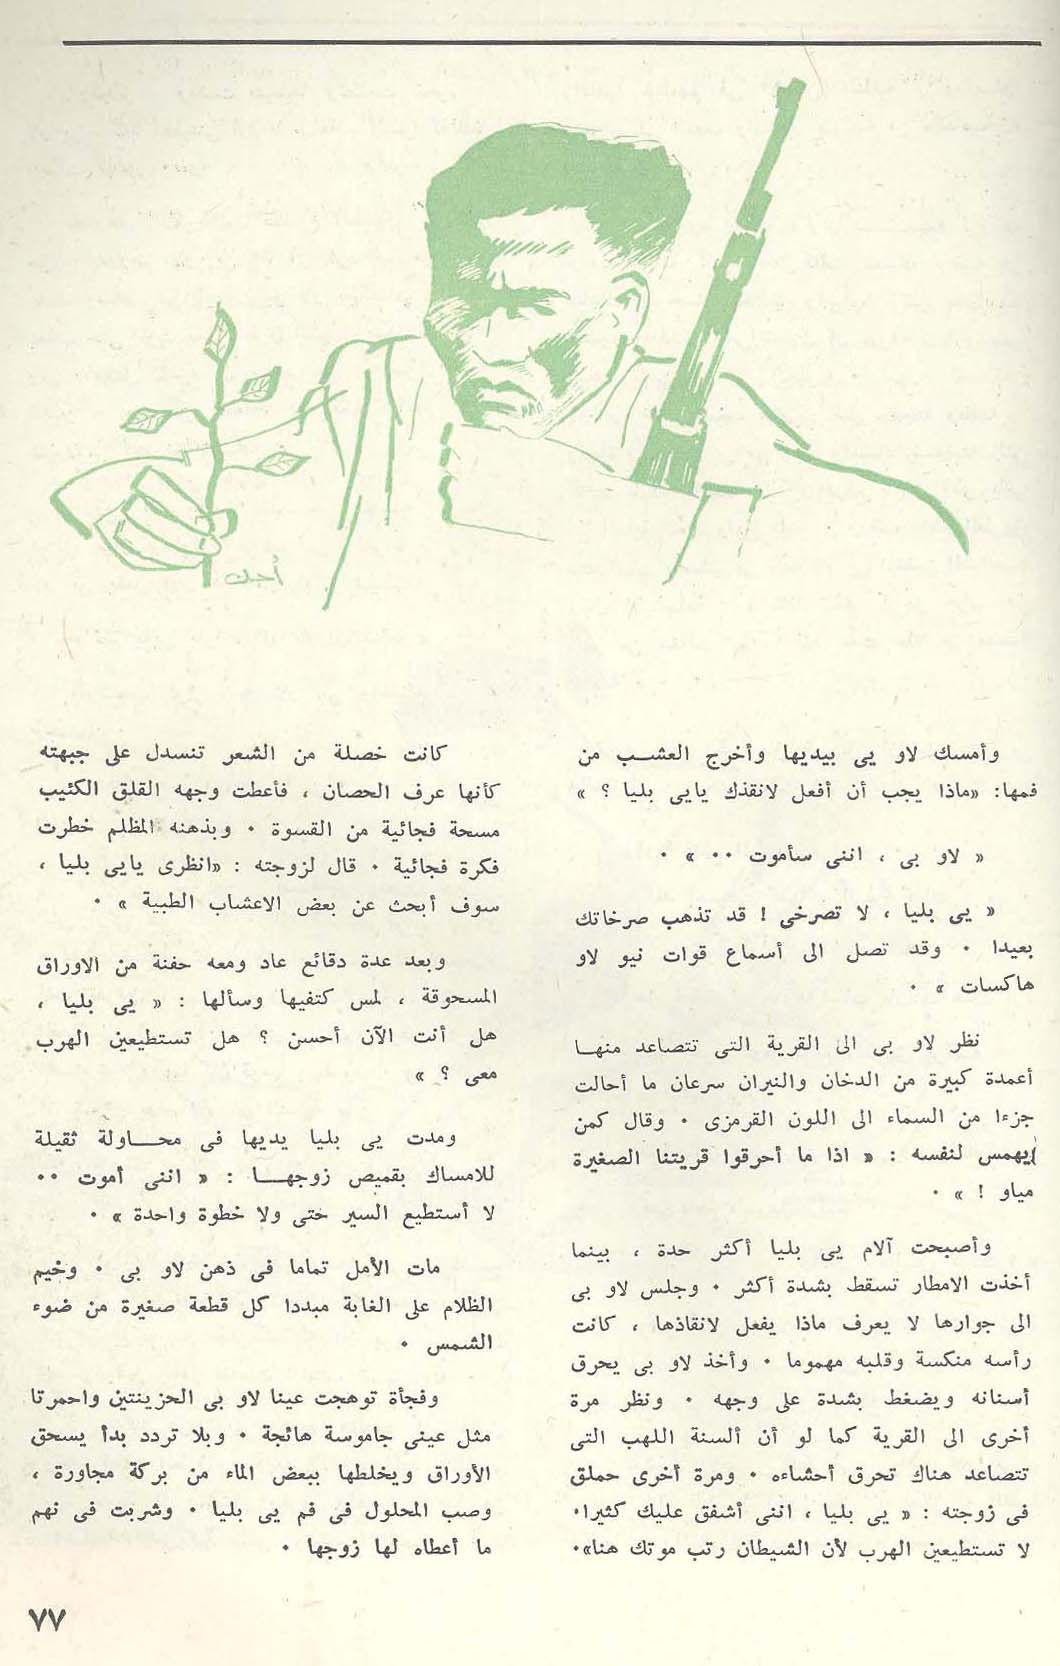 وأمسك لاو يى بيديها وأخرج العشب من
فمها: «ماذا يجب أن أفعل لانقذك يايى بليا ؟ »
« لاو بى ، اننى سأموت ٠٠ » ٠
« يى بليا ، لا تصرخى ! قد تذهب صرخاتك
بعيدا ٠ وقد تصل الى أسماع قوات نيو لاو
هاكسات » ٠
نظر لاو بى الى القرية التى تتصاعد منها
أعمدة كبيرة من الدخان والنيران سرعان ما أحالت
جزءا من السماء الى اللون القرمزى ٠ وقال كمن
يهمس لنفسه : « اذا ما أحرقوا قريتنا الصغيرة
مياو ! » ٠
وأصبحت آلام يى بليا أكثر حدة ، بينما
أخذت الامطار تسقط بشدة أكثر ٠ وجلس لاو بى
الى جوارها لا يعرف ماذا يفعل لانقاذها ، كانت
رأسه منكسة وقلبه مهموما ٠ وأخذ لاو بى يحرق
أسنانه ويضغط بشدة على وجهه ٠ ونظر مرة
أخرى الى القرية كما لو أن ألسنة اللهب التى
تتصاعد هناك تحرق أحشاءه ٠ ومرة أخرى حملق
فى زوجته : « يى بليا ، اننى أشفق عليك كثيرا٠
لا تستطيعين الهرب لأن الشيطان رتب موتك هنا»٠
كانت خصلة من الشعر تنسدل على جبهته
كأنها عرف الحصان ، فأعطت وجهه القلق الكئيب
مسحة فجائية من القسوة ٠ وبذهنه المظلم خطرت
فكرة فجائية ٠ قال لزوجته : «انظرى يايى بليا ،
سوف أبحث عن بعض الاعشاب الطبية » ٠
وبعد عدة دقائع عاد ومعه حفنة من الاوراق
المسحوقة ، لمس كتفيها وسألها : « يى بليا ،
هل أنت الآن أحسن ؟ هل تستطيعين الهرب
معى ؟ »
ومدت يى بليا يديها فى محاولة ثقيلة
للامساك بقميص زوجها : « اننى أموت ٠٠
لا أستطيع السير حتى ولا خطوة واحدة » ٠
مات الأمل تماما فى ذهن لاو بى ٠ وخيم
الظلام على الغابة مبددا كل قطعة صغيرة من ضوء
الشمس ٠
وفجأة توهجت عينا لاو بى الحزينتين واحمرتا
مثل عينى جاموسة هائجة ٠ وبلا تردد بدأ يسحق
الأوراق ويخلطها ببعض الماء من بركة مجاورة ،
وصب المحلول فى فم يى بليا ٠ وشربت فى نهم
ما أعطاه لها زوجها ٠
٧٧